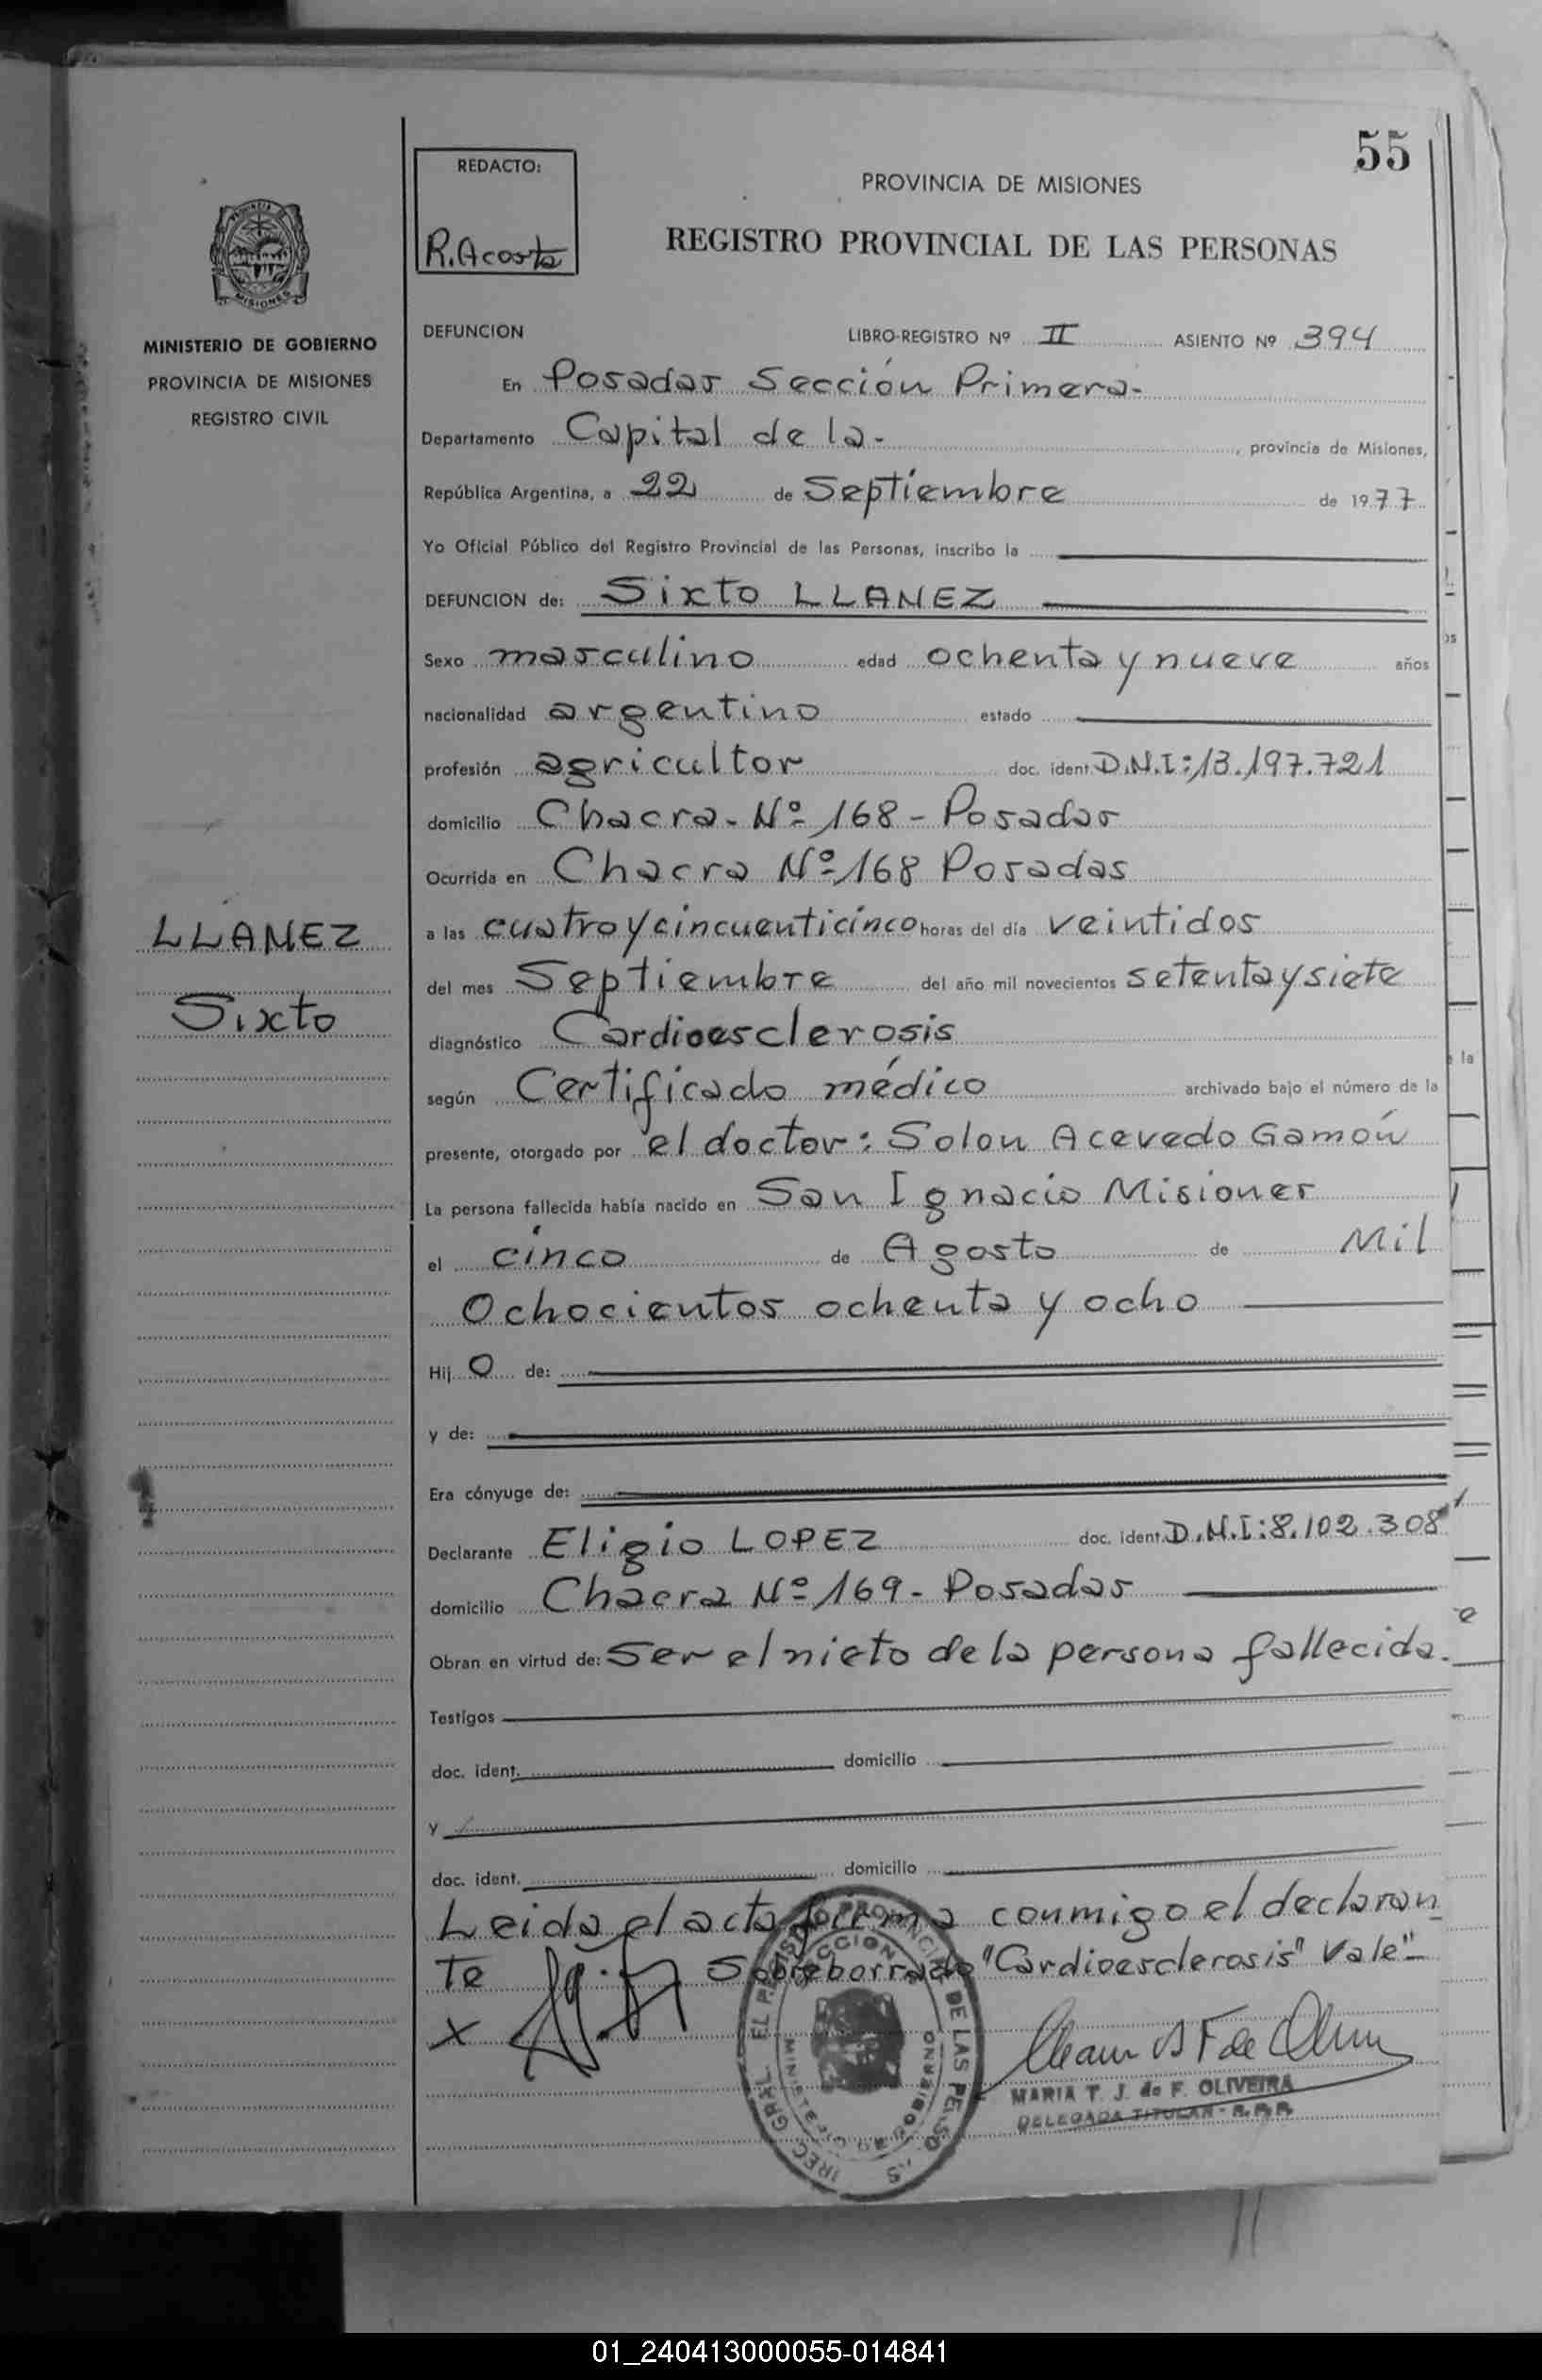 55
REDACTO:
R. Acosta
PROVINCIA DE MISIONES
REGISTRO PROVINCIAL DE LAS PERSONAS
MISIONES
MINISTERIO DE GOBIERNO
PROVINCIA DE MISIONES
REGISTRO CIVIL
DEFUNCION LIBRO-REGISTRO Nº II ASIENTO Nº 394
En Posadas Sección Primera-
Departamento Capital de la- , provincia de Misiones,
República Argentina, a 22 de Septiembre de 1977
Yo Oficial Público del Registro Provincial de las Personas, inscribo la
DEFUNCION de: Sixto LLANEZ
Sexo masculino edad ochenta y nueve años
nacionalidad argentino estado
profesión agricultor doc. ident. D.N.I:13.197.721
domicilio Chacra-Nº 168-Posadas
Ocurrida en Chacra Nº 168 Posadas
LLANEZ
Sixto
a las cuatro y cincuenticinco horas del día veintidos
del mes Septiembre del año mil novecientos setenta y siete
diagnóstico Cardioesclerosis
según Certificado médico archivado bajo el número de la
presente, otorgado por el doctor: Solon Acevedo Gamón
La persona fallecida había nacido en San Ignacio Misiones
el cinco de Agosto de Mil
Ochocientos ochenta y ocho
Hijo de:
y de:
Era cónyuge de:
Declarante Eligio LOPEZ doc. ident. D.N.I:8.102.308
domicilio Chacra Nº 169-Posadas
Obran en virtud de: Ser el nieto de la persona fallecida.
Testigos
doc. ident. domicilio
y
doc. ident. domicilio
Leida el acta firma conmigo el declaran
te Sobreborrado "Cardioesclerosis" Vale"-
X
MARIA T. J. de F. OLIVEIRA
DELEGADA TITULAR - R.P.P.
01_240413000055-014841